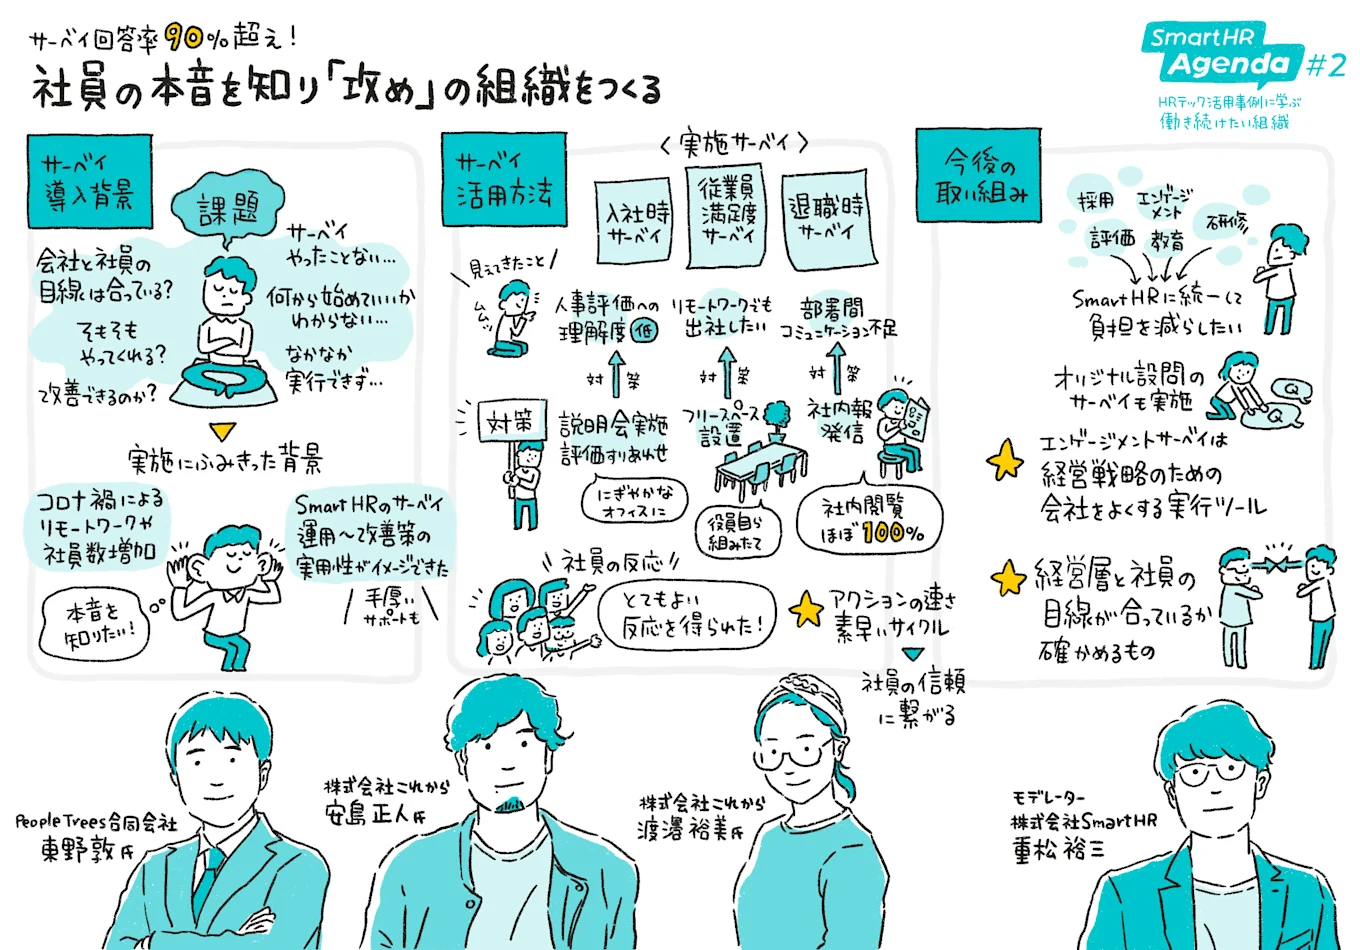 サーベイ回答率90%超え!
社員の本音を知り「攻め」の組織をつくる
SmartHR
Agenda #2
HRテック活用事例に学ぶ
働き続けたい組織
サーベイ
導入背景
課題
会社と社員の
目線は合っている?
そもそも
やってくれる?
改善できるのか?
サーベイ
やったことない…
何から始めていいか
わからない…
なかなか
実行できず…
実施にふみきった背景
コロナ禍による
リモートワークや
社員数増加
本音を
知りたい!
SmartHRのサーベイ
運用〜改善策の
実用性がイメージできた
手厚い
サポートも
サーベイ
活用方法
〈実施サーベイ〉
入社時
サーベイ
従業員
満足度
サーベイ
退職時
サーベイ
見えてきたこと
ムムッ
人事評価への
理解度 低
リモートワークでも
出社したい
部署間
コミュニケーション不足
対策
対策
対策
対策
説明会実施
評価すりあわせ
フリースペース
設置
社内報
発信
にぎやかな
オフィスに
役員自ら
組みたて
社内閲覧
ほぼ100%
社員の反応
とてもよい
反応を得られた!
アクションの速さ
素早いサイクル
社員の信頼
に繋がる
今後の
取り組み
採用
エンゲージ
メント
評価
教育
研修
SmartHRに統一して
負担を減らしたい
オリジナル設問の
サーベイも実施
Q
Q
エンゲージメントサーベイは
経営戦略のための
会社をよくする実行ツール
経営層と社員の
目線が合っているか
確かめるもの
People Trees合同会社
東野敦氏
株式会社これから
安島正人氏
株式会社これから
渡邉裕美氏
モデレーター
株式会社SmartHR
重松裕三